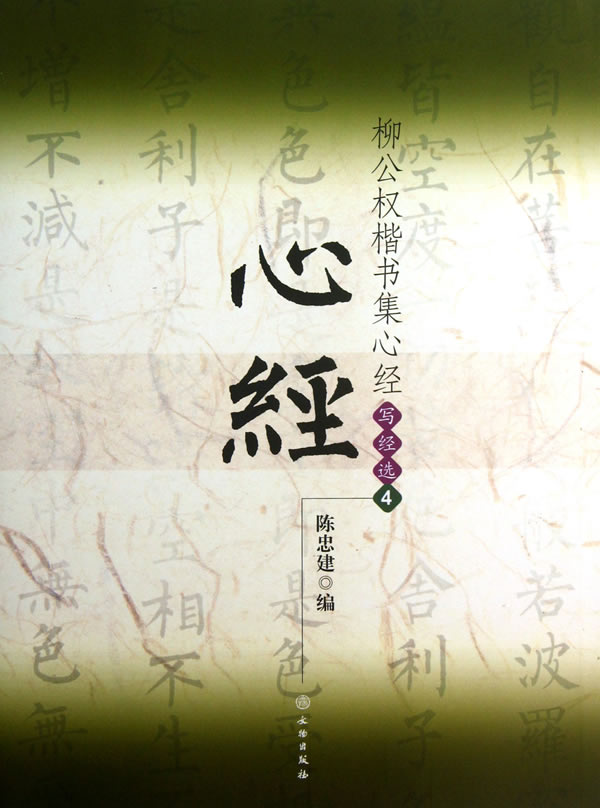 柳公权楷书集心经
写经选
4
心經
陈忠建◎编
文物出版社
觀自在菩
般若波羅
蘊皆空度
舍利子
色即
是色受
舍利子是
空相不生
增不減是
中無色無